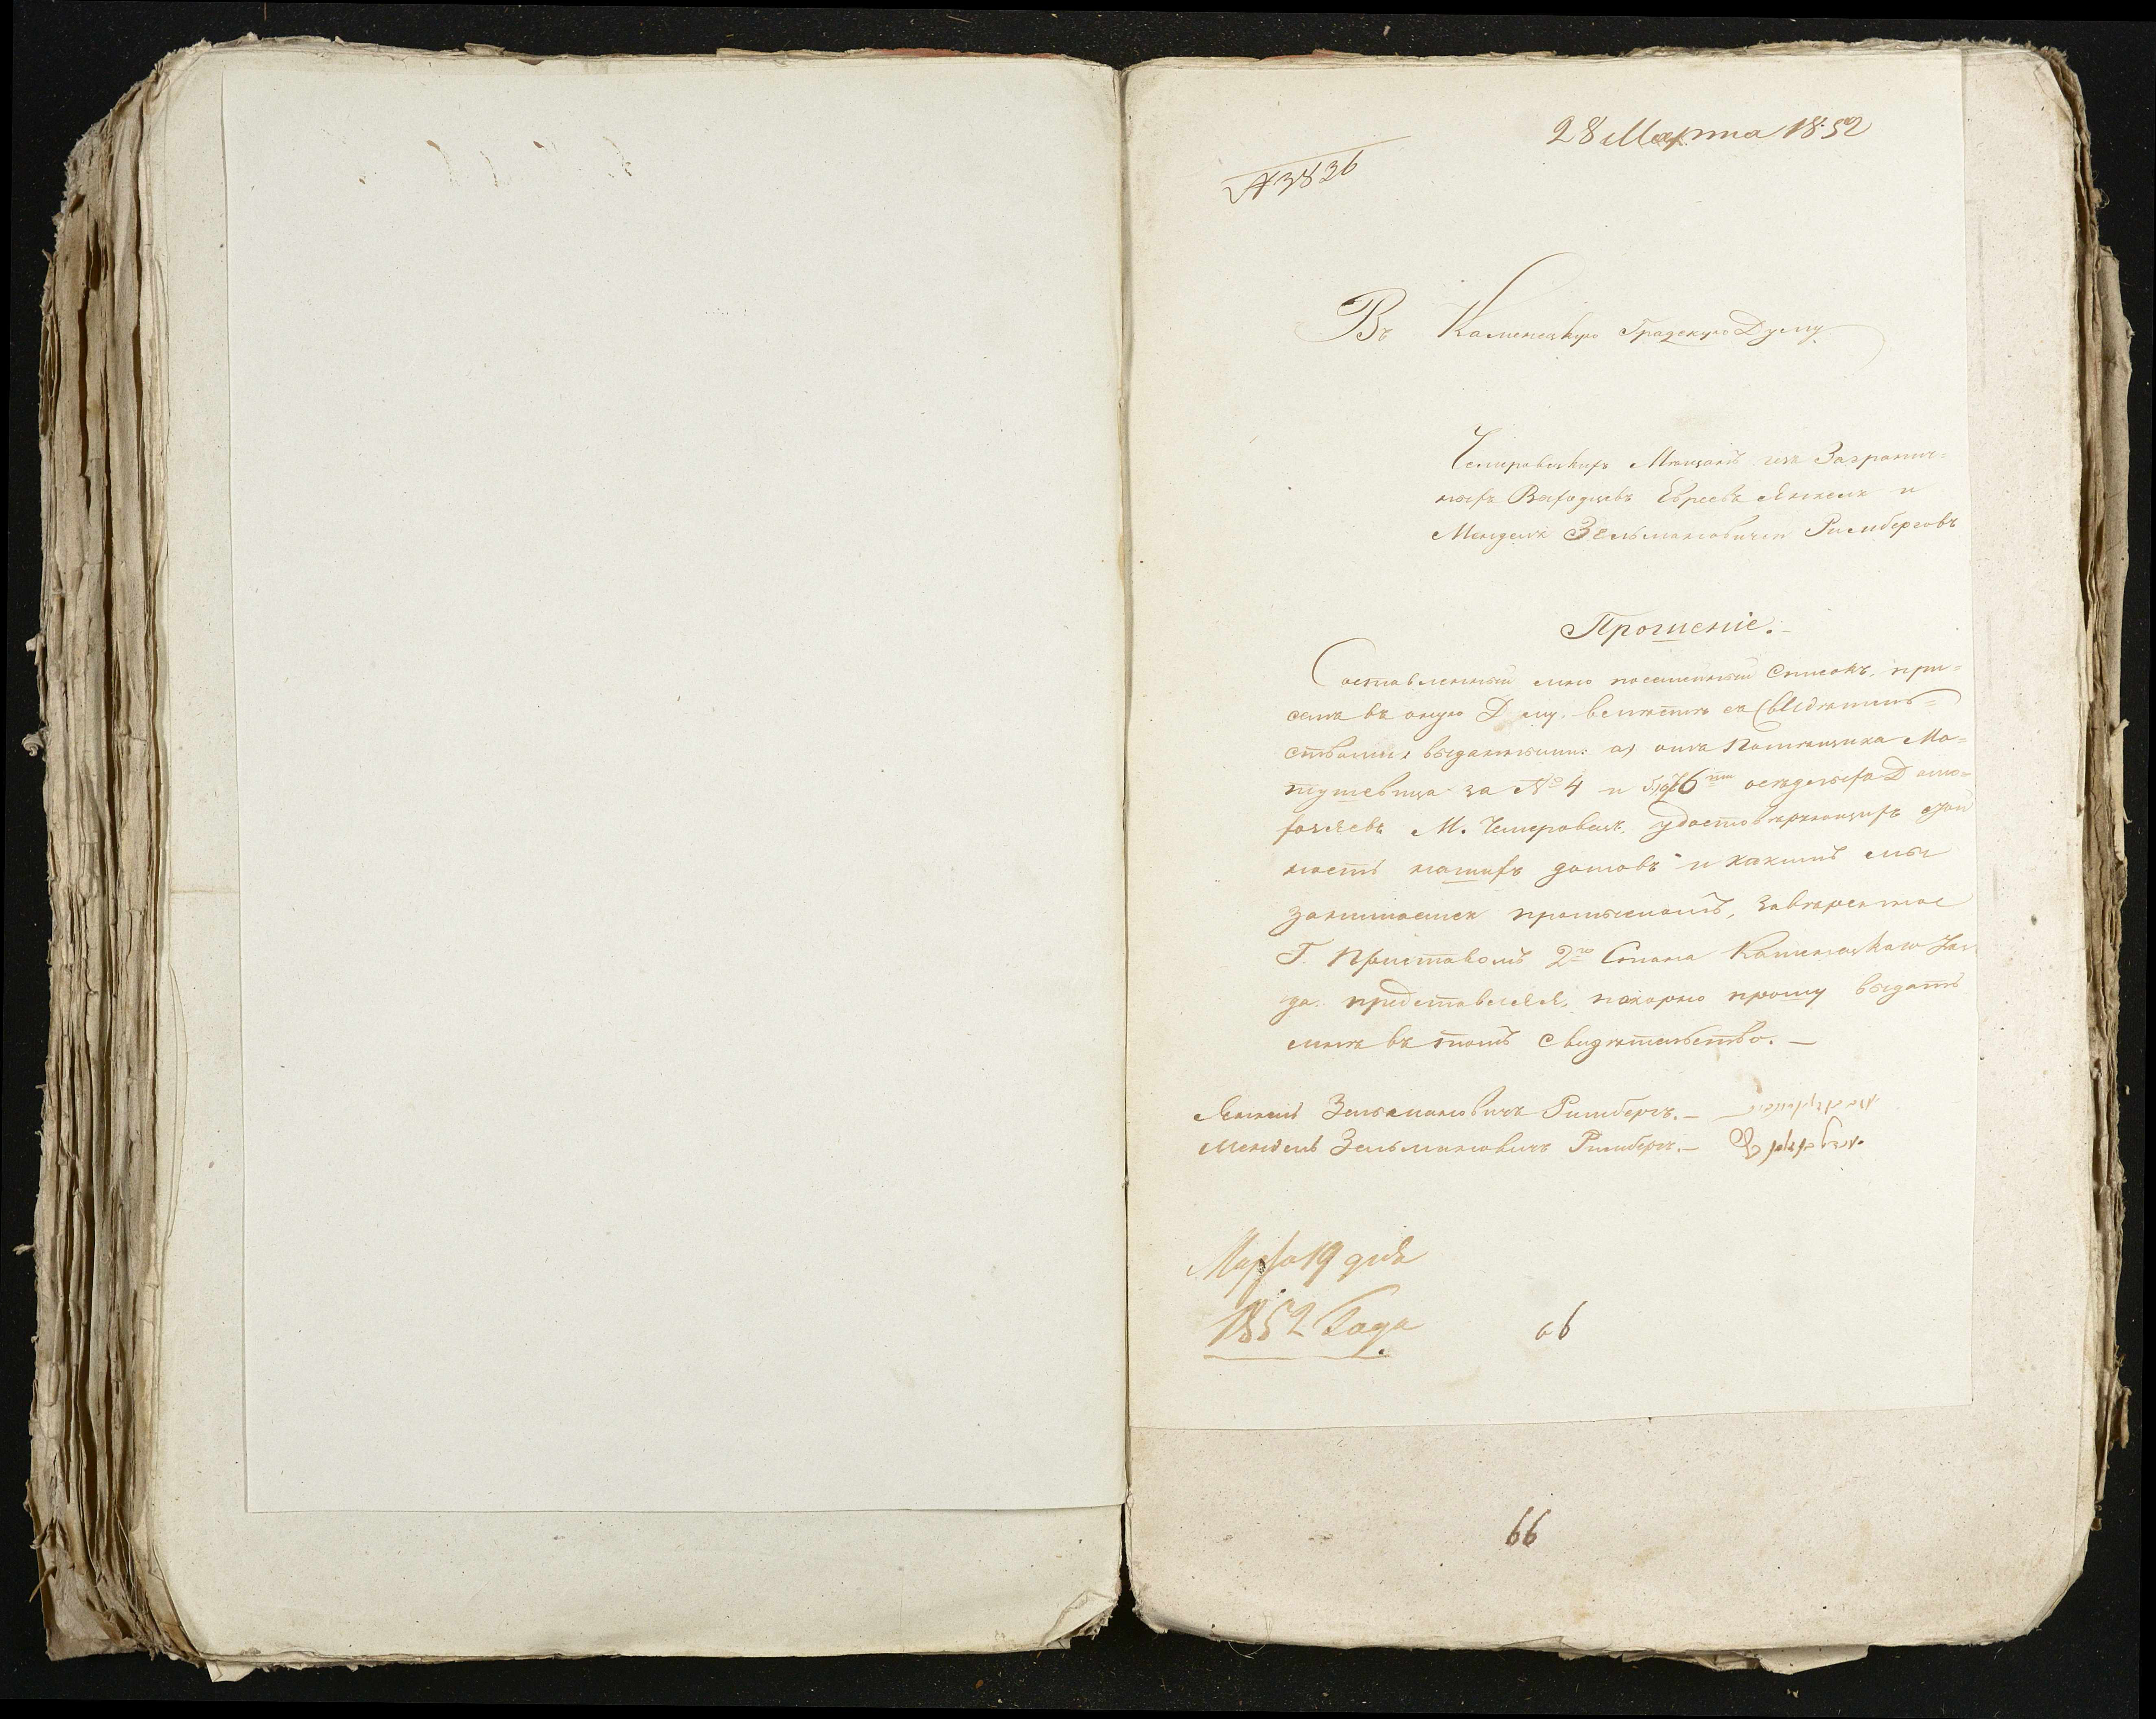 28 Марта 1852
№ 3836
Въ Каменецкую Градскую Думу
Чемировецкихъ Мѣщанъ изъ Загранич=
ныхъ Выходцевъ Евреевъ Янкеля и
Менделя Зельмановичей Римберговъ
Прошеніе.
Составленный мною посемейный Списокъ, при=
семъ въ оную Думу. вмѣстѣ съ Свидѣтель=
ствами, выданными: а, отъ Помѣщика Ма=
тушевица за № 4 и 6ти осѣдлыхъ Домо=
хозяевъ М. Чемировецъ, удостовѣряющихъ
ность нашихъ домовъ и какимъ мы
занимаемся промысломъ, завѣренное
Г. Приставомъ 2го Стана Каменецкаго Уѣз
да. представляя, покорно прошу выдать
мнѣ въ томъ свидѣтельство. —
Янкель Зельмановичъ Римбергъ. —
Мендель Зельмановичъ Римбергъ. —
Марта 19 дня
1852 Года
66
66